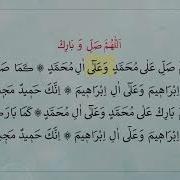 اَللّٰهُمَّ صَلِّ وَ بَارِكْ
صَلِّ عَلٰى مُحَمَّدٍ وَعَلٰٓى اٰلِ مُحَمَّدٍ ۞ كَمَا
اِبْرَاهِيمَ وَعَلٰٓى اٰلِ اِبْرَاهِيمَ ۞ اِنَّكَ حَمِيدٌ
بَارِكْ عَلٰى مُحَمَّدٍ وَعَلٰٓى اٰلِ مُحَمَّدٍ ۞ كَمَا
اِبْرَاهِيمَ وَعَلٰٓى اٰلِ اِبْرَاهِيمَ ۞ اِنَّكَ حَمِيدٌ